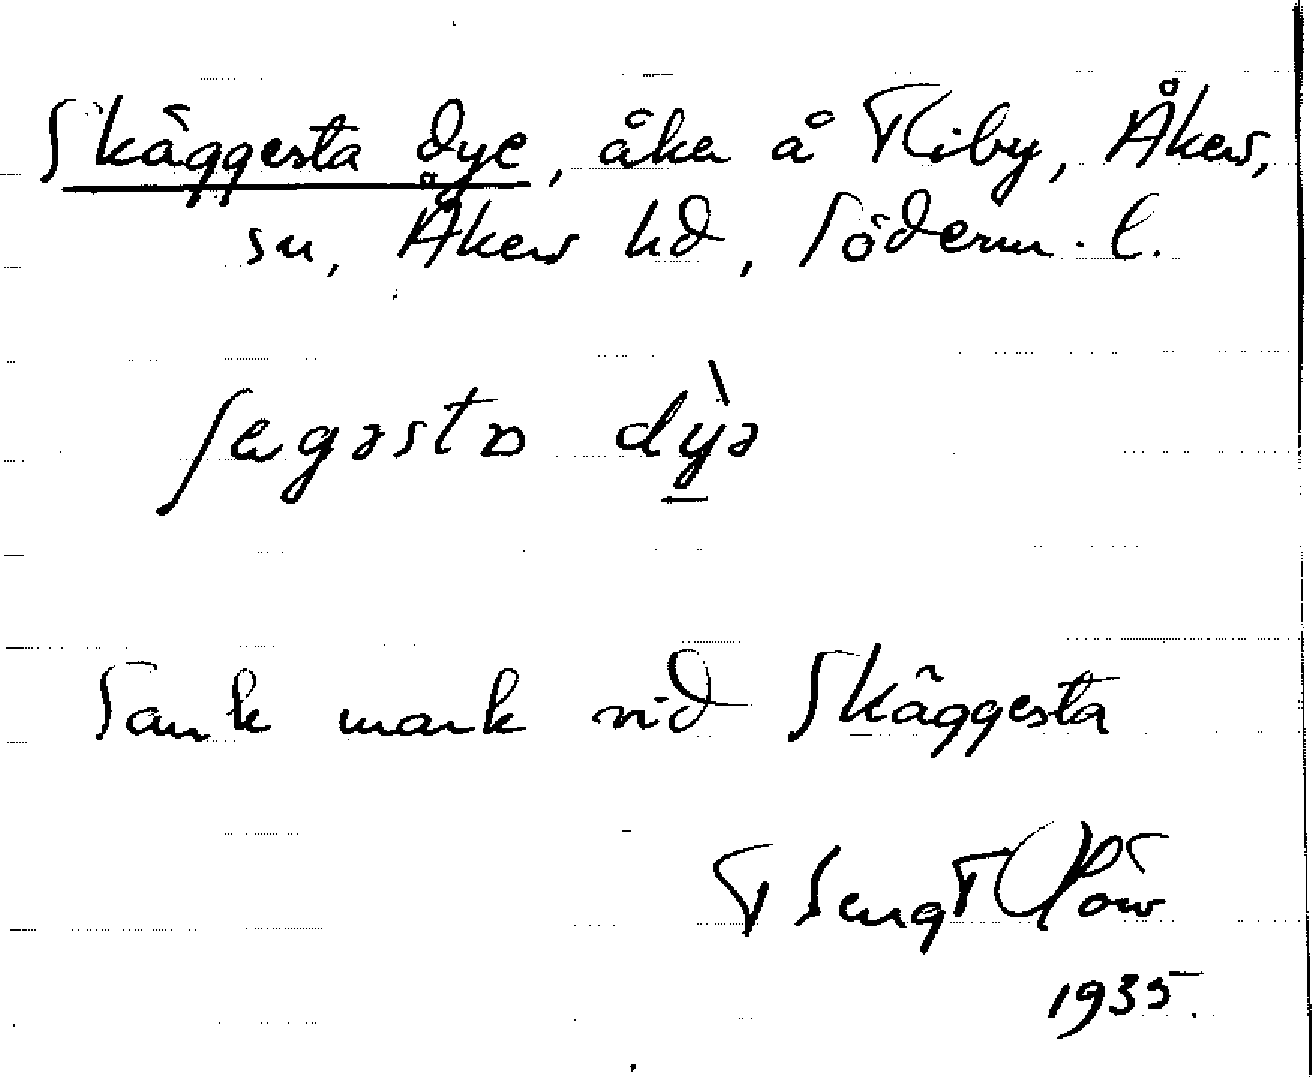 Skäggesta dye, åker å Viby, Åkers,
sn, Åkers hd, Söderm. l.
ſegəsta dỳə
Sank mark vid Skäggesta
1935.